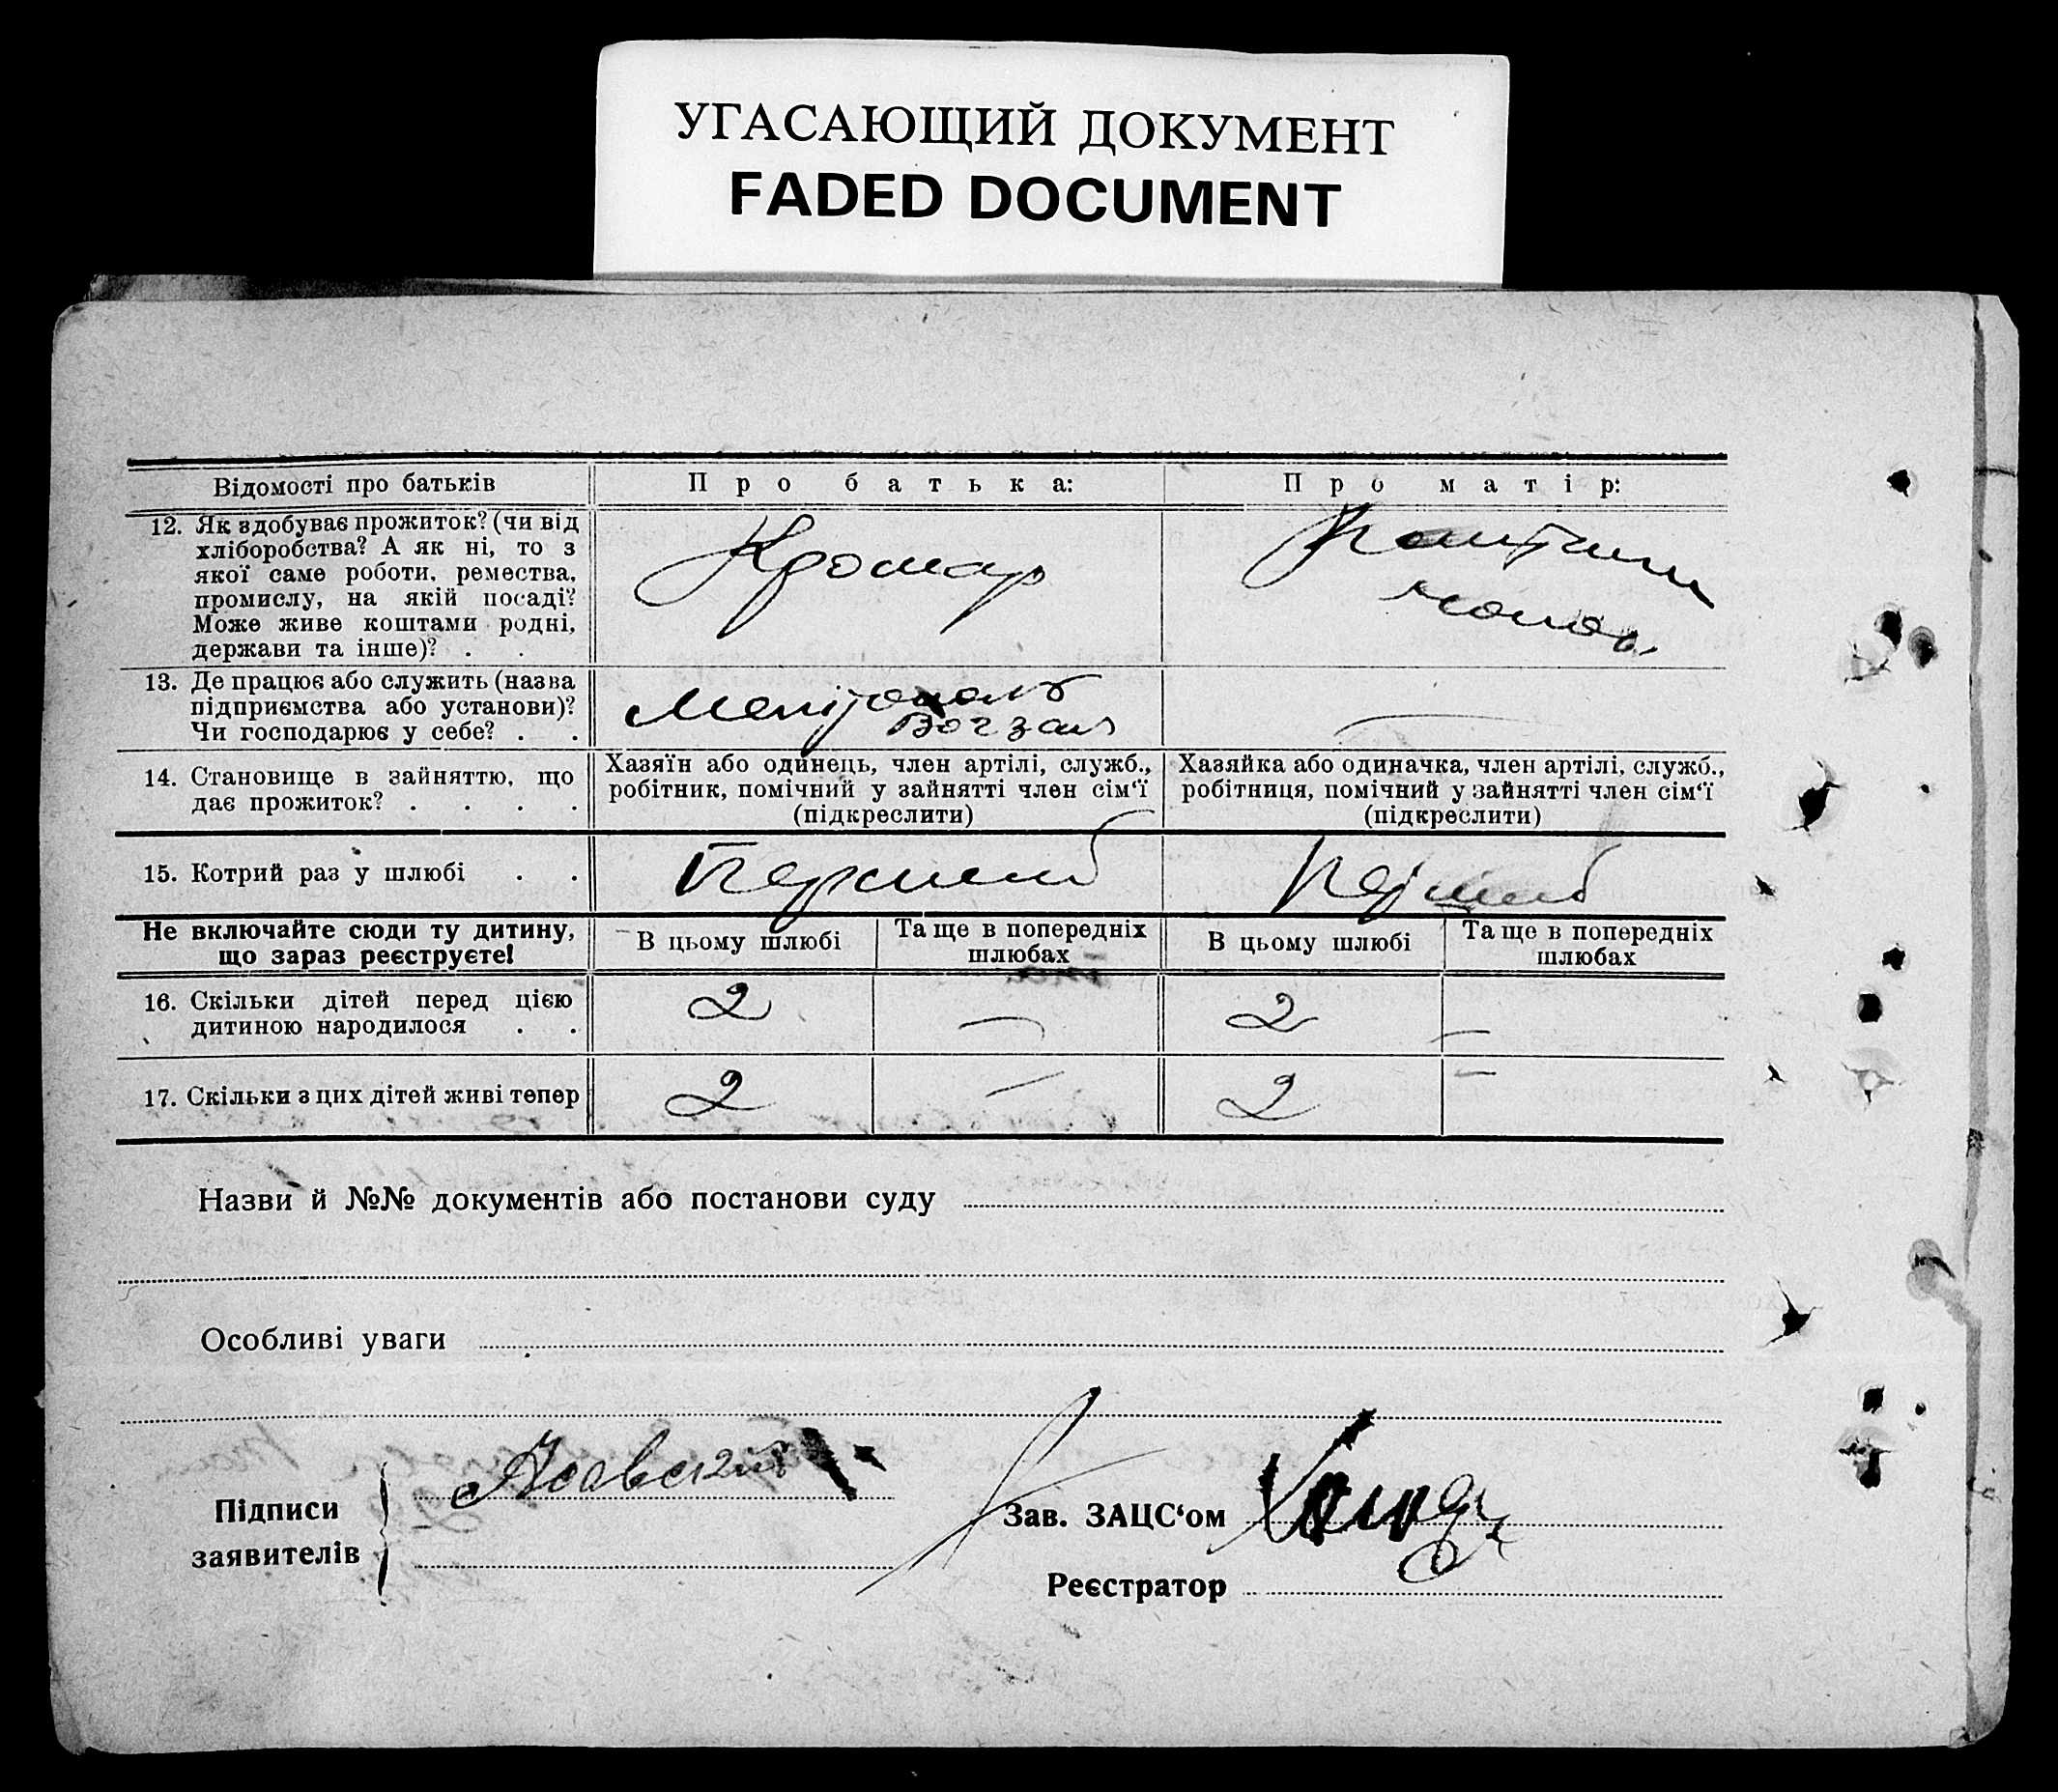 УГАСАЮЩИЙ ДОКУМЕНТ
FADED DOCUMENT
Відомості про батьків
Про батька:
Про матір:
12. Як здобуває прожиток? (чи від
хліборобства? А як ні, то з
якої саме роботи, ремества,
промислу, на якій посаді?
Може живе коштами родні,
держави та інше)? . .
Крамар
Коштами
13. Де працює або служить (назва
підприємства або установи)?
Чи господарює у себе? . .
Мелітополь
Вогзал
—
14. Становище в зайняттю, що
дає прожиток? . . . .
Хазяїн або одинець, член артілі, служб.,
робітник, помічний у зайнятті член сім‘ї
(підкреслити)
Хазяйка або одиначка, член артілі, служб.,
робітниця, помічний у зайнятті член сім‘ї
(підкреслити)
15. Котрий раз у шлюбі . .
Первый
Первый
Не включайте сюди ту дитину,
що зараз реєструєте!
В цьому шлюбі
Та ще в попередніх
шлюбах
В цьому шлюбі
Та ще в попередніх
шлюбах
16. Скільки дітей перед цією
дитиною народилося . .
2
—
2
—
17. Скільки з цих дітей живі тепер
2
—
2
—
Назви й №№ документів або постанови суду
Особливі уваги
Підписи
заявителів
Зав. ЗАЦС‘ом
Реєстратор